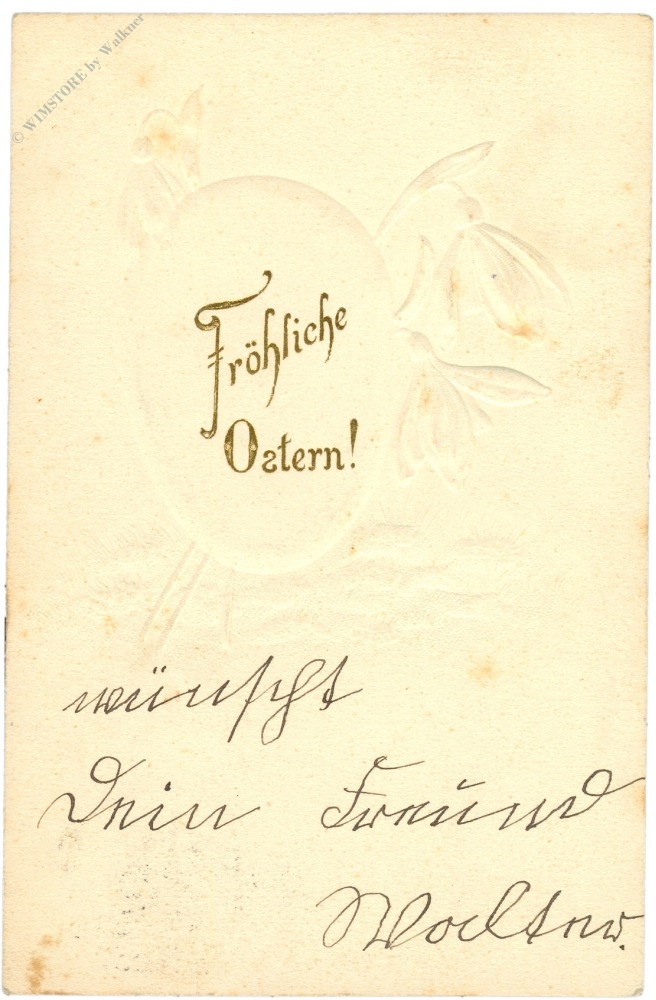 © WIMSTORE by Walkner
Fröhliche
Ostern!
wünscht
Dein Freund
Walter.